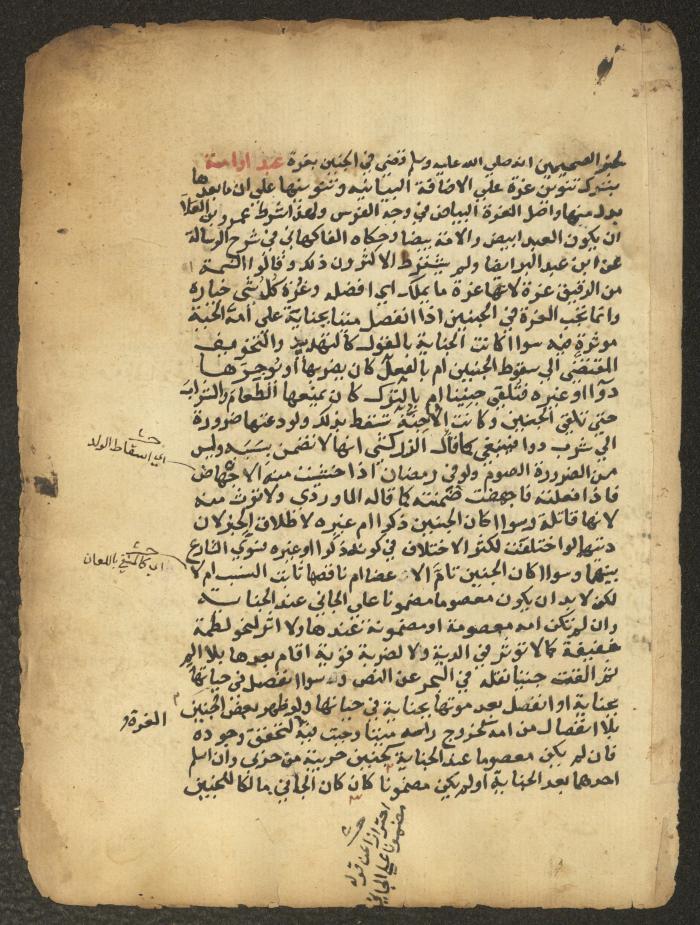 لخبر الصحيحين انه صلي الله عليه وسلم قضي في الجنين بغرة عبد او امة
بترك تنوين غرة علي الاضافة البيانيه وتنوينها علي ان ما بعدها
بدل منها واصل الغرة البياض في وجه الفرس ولهذا شرط عمرو بن العلا
ان يكون العبد ابيض والامة بيضا وحكاه الفاكهاني في شرح الرسالة
عن ابن عبد البر ايضا ولم يشترط الاكثرون ذلك وقالوا النسمة
من الرقيق غرة لانها غرة ما يملك اي افضله وغرة كل شي خياره
وانما تجب الغرة في الجنين اذا انفصل ميتا بجناية علي امه الحية
موثرة فيه سوا اكانت الجناية بالقول كالتهديد والتخويف
المقتضي الي سقوط الجنين ام بالفعل كان يضربها او يوجرها
دوا او غيره فتلقي جنينا ام بالترك كان يمنعها الطعام والشراب
حتي تلقي الجنين وكانت الاجنة تسقط بذلك ولو دعتها ضرورة
الي شرب دوا فينبغي كما قال الزركشي انها لا تضمن بسببه وليس
من الضرورة الصوم ولو في رمضان اذا خشيت منه الاجهاض
فاذا فعلته فاجهضت ضمنته كما قاله الماوردي ولا ترث منه
لانها قاتلة وسوا اكان الجنين ذكرا ام غيره لاطلاق الخبر لان
ديتهما لو اختلفت لكثر الاختلاف في كونه ذكرا او غيره فسوي الشارع
بينهما وسوا اكان الجنين تام الاعضا ام ناقصها ثابت النسب ام لا
لكن لا بد ان يكون معصوما مضمونا علي الجاني عند الجناية
وان لم تكن امه معصومة او مضمونة عندها ولا اثر لنحو لطمة
خفيفة كما لا توثر في الدية ولا لضربة قوية اقام بعدها بلا الم
ثم القت جنينا نقله في البحر عن النص وسوا انفصل في حياتها
بجناية او انفصل بعد موتها بجناية في حياتها ولو ظهر بعض الجنين
بلا انفصال من امه كخروج راسه ميتا وجبت فيه لتحقق وجوده
فان لم يكن معصوما عند الجناية كجنين حربية من حربي وان اسلم
احدهما بعد الجناية او لم يكن مضمونا كان كان الجاني مالكا للجنين
اي اسقاط الولد
اي كالمنفي باللعان
الغرة
احترازا عن قوله
مضمونا علي الجاني